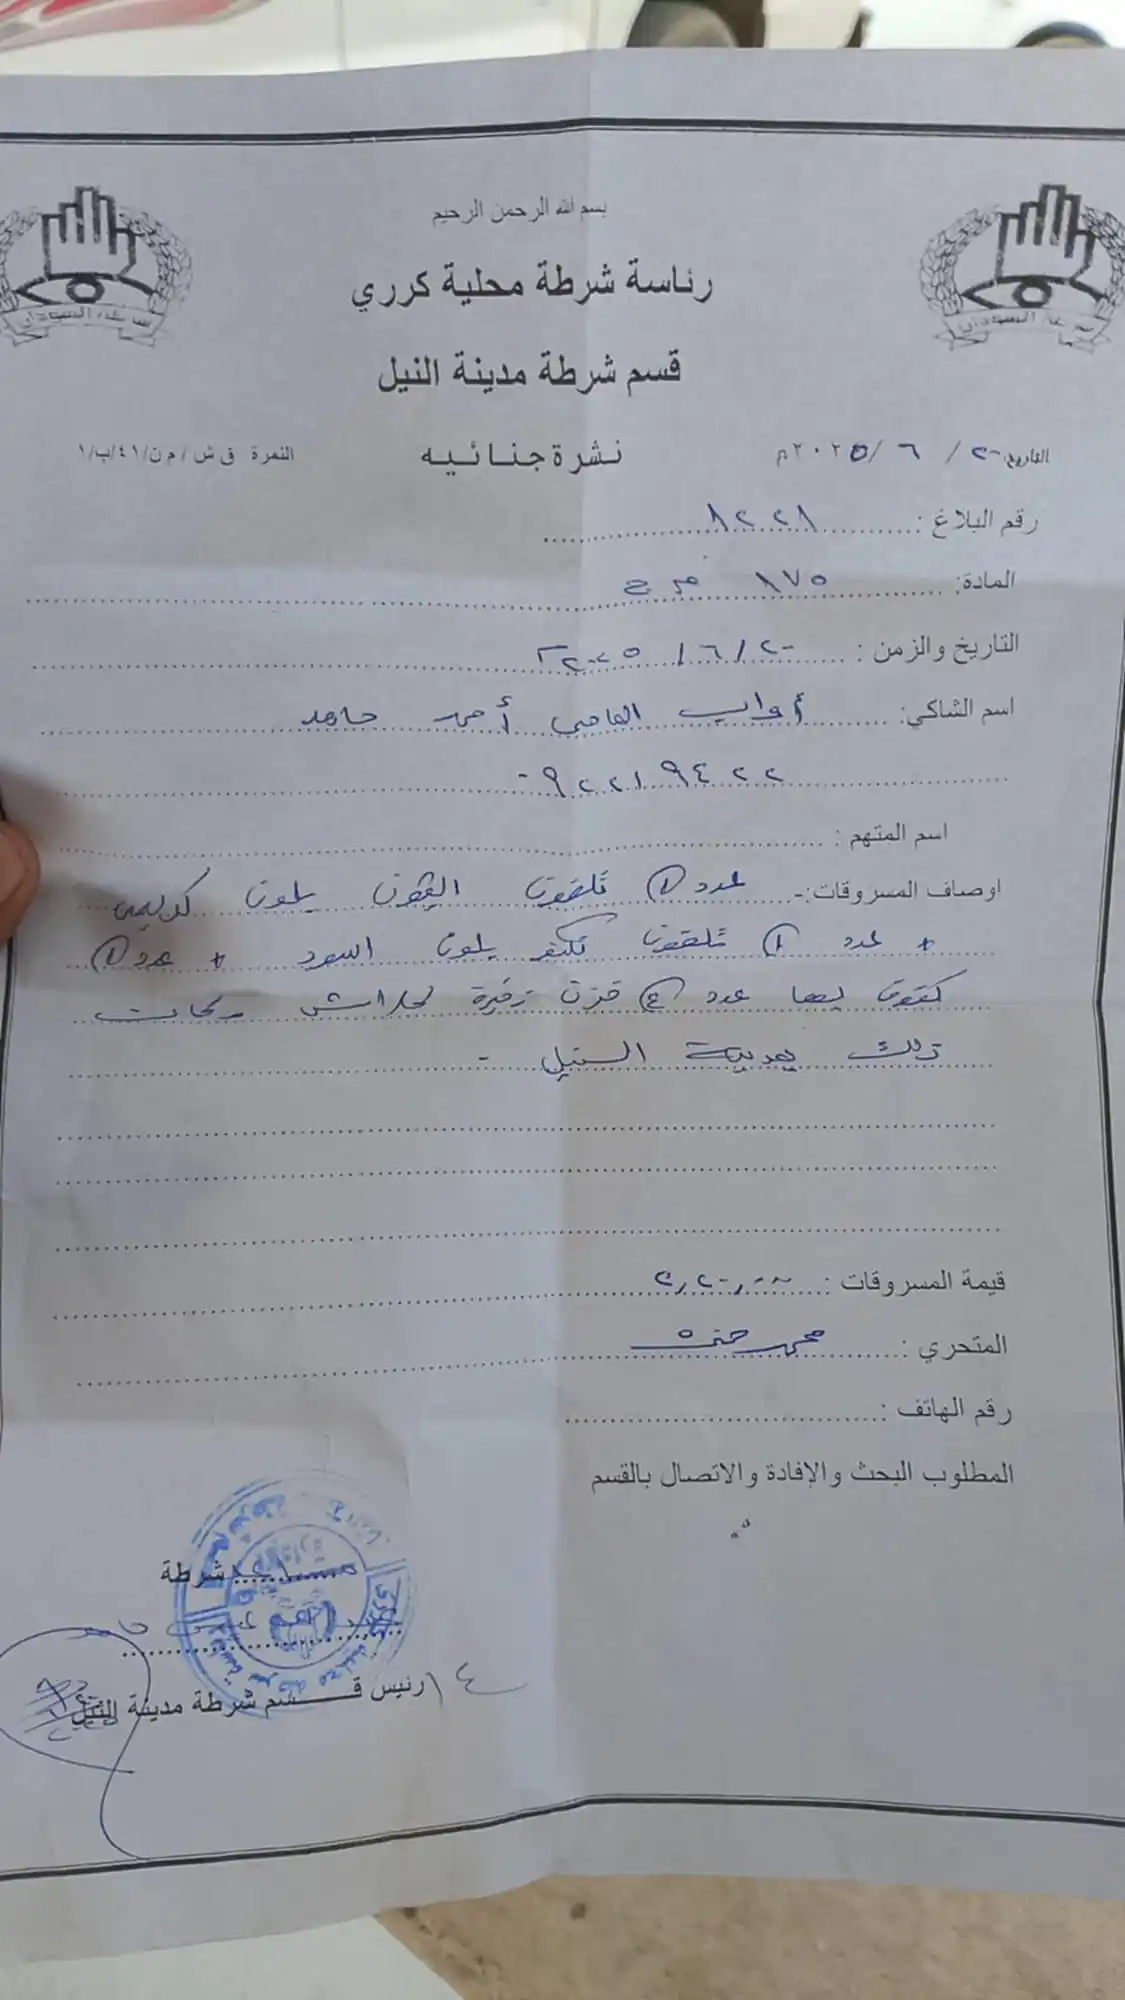 بسم الله الرحمن الرحيم
رئاسة شرطة محلية كرري
قسم شرطة مدينة النيل
التاريخ: ٢٠ / ٦ / ٢٠٢٥م
نشرة جنائيه
النمرة ق ش / م ن/٤١/ب/١
رقم البلاغ : ٨٢٢٨
المادة: ١٧٥ ق ج
التاريخ والزمن : ٢٠/٦/٢٠٢٥
اسم الشاكي: أواب أحمد حامد
٠٩٢٢١٩٤٢٢
اسم المتهم :
اوصاف المسروقات:- عدد ١ تلفون بلون
+ عدد ١ تلفون بلون اسود + عدد ١
كرتون بها عدد ٤
ذلك بمدينة النيل -
قيمة المسروقات :
المتحري : محمد
رقم الهاتف :
المطلوب البحث والإفادة والاتصال بالقسم
شرطة
ع/رئيس قسم شرطة مدينة النيل